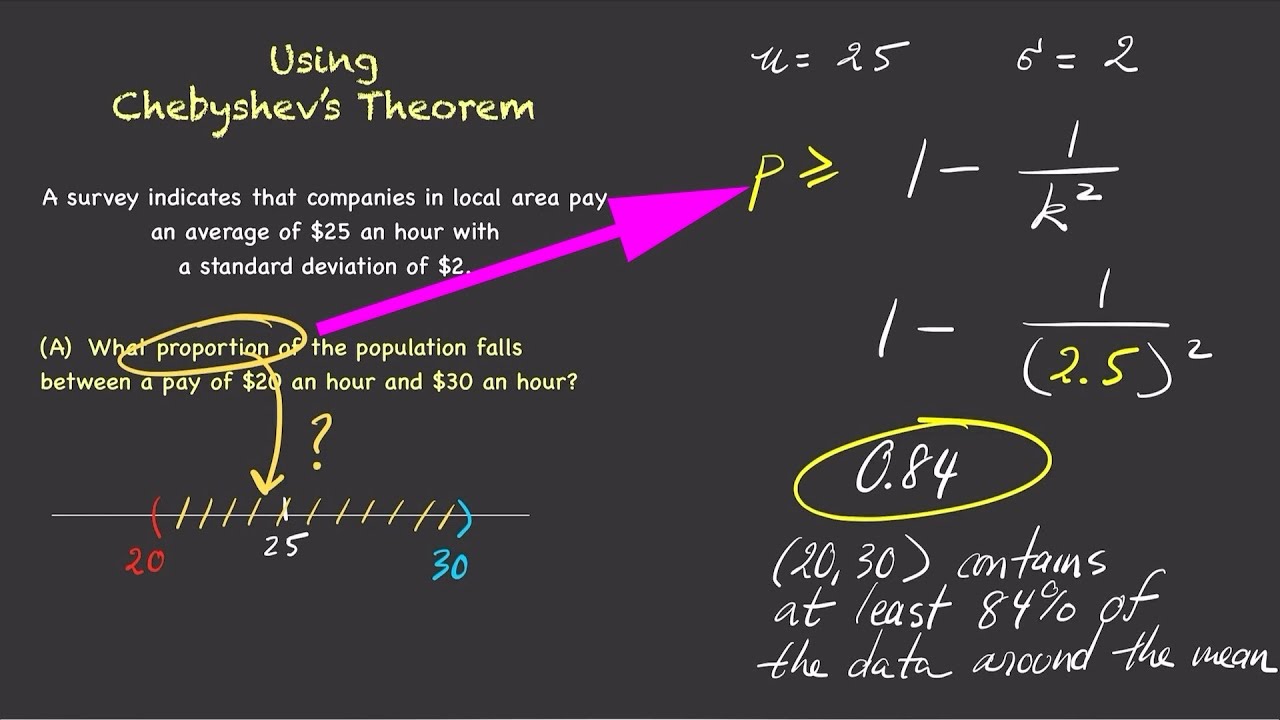 Using
Chebyshev's Theorem
A survey indicates that companies in local area pay
an average of $25 an hour with
a standard deviation of $2.
(A) What proportion of the population falls
between a pay of $20 an hour and $30 an hour?
?
20
25
30
u = 25 σ = 2
p ≥ 1 - 1/k²
1 - 1/(2.5)²
0.84
(20, 30) contains
at least 84% of
the data around the mean